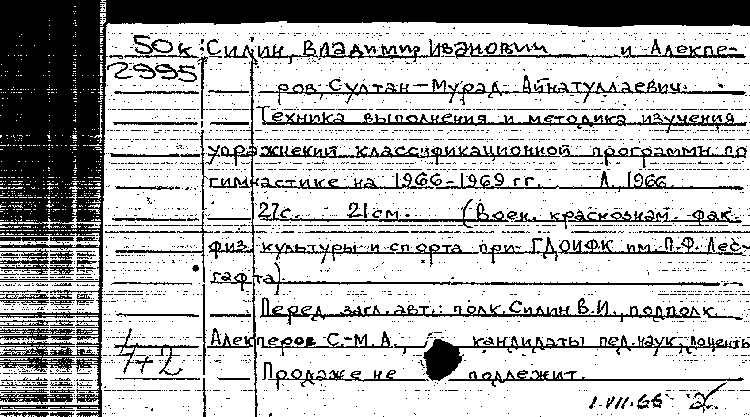 50к Силин, Владимир Иванович и Алекпе-
2995
ров, Султан-Мурад Айнатуллаевич.
Техника выполнения и методика изучения
упражнений классификационной программы по
гимнастике на 1966-1969 гг. Л., 1966.
27с. 21 см. (Воен. краснознам. фак.
физ. культуры и спорта при ГДОИФК им. П.Ф. Лес-
гафта)
Перед загл. авт.: полк. Силин В.И., подполк.
Алекперов С.-М.А., кандидаты пед. наук, доценты
4+2
Продаже не подлежит.
1.VII.66